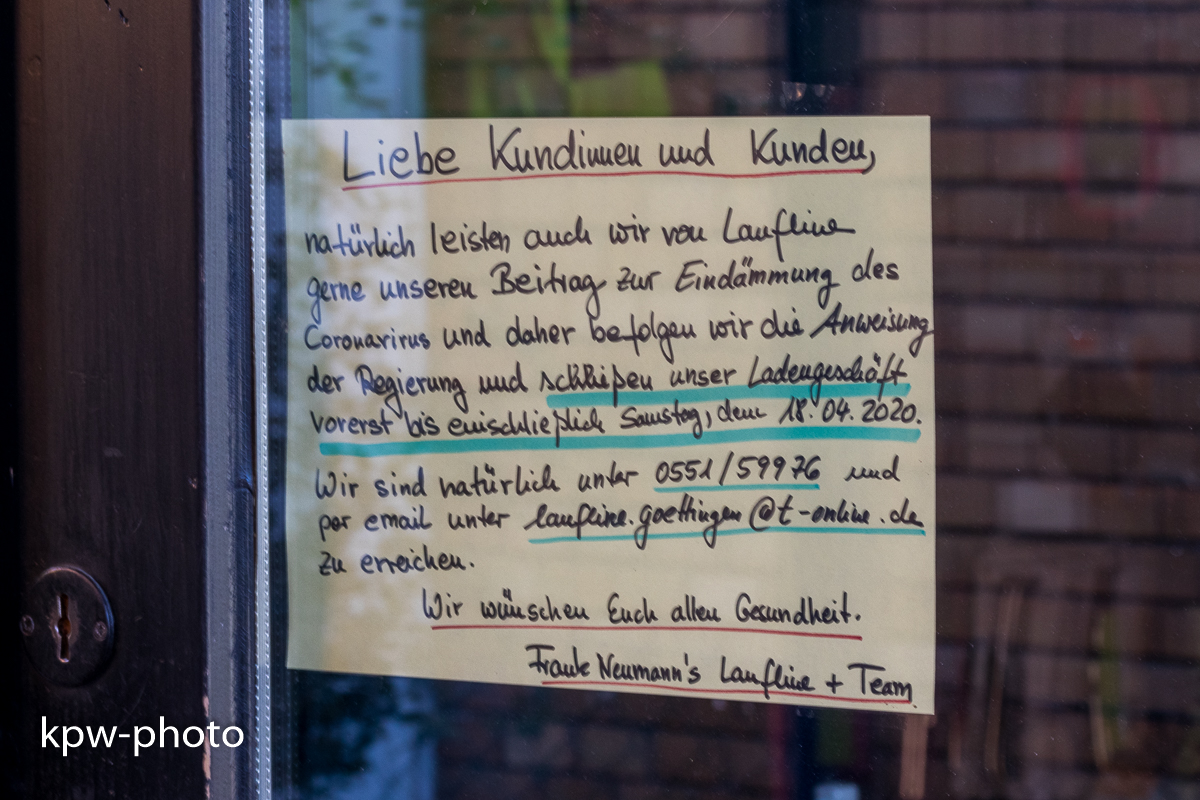 Liebe Kundinnen und Kunden,
natürlich leisten auch wir von Laufline
gerne unseren Beitrag zur Eindämmung des
Coronavirus und daher befolgen wir die Anweisung
der Regierung und schließen unser Ladengeschäft
vorerst bis einschließlich Samstag, dem 18.04.2020.
Wir sind natürlich unter 0551/59976 und
per email unter laufline.goettingen@t-online.de
zu erreichen.
Wir wünschen Euch allen Gesundheit.
Frauke Neumann's Laufline + Team
kpw-photo